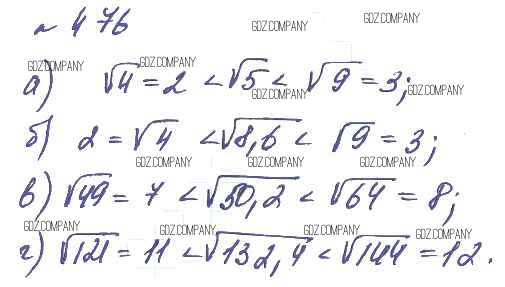 № 476
GDZ.COMPANY GDZ.COMPANY
GDZ.COMPANY GDZ.COMPANY
а) √4 = 2 < √5 < √9 = 3;
GDZ.COMPANY GDZ.COMPANY
б) 2 = √4 < √8,6 < √9 = 3;
GDZ.COMPANY GDZ.COMPANY GDZ.COMPANY
в) √49 = 7 < √50,2 < √64 = 8;
GDZ.COMPANY GDZ.COMPANY GDZ.COMPANY GDZ.COMPANY
г) √121 = 11 < √132,4 < √144 = 12.